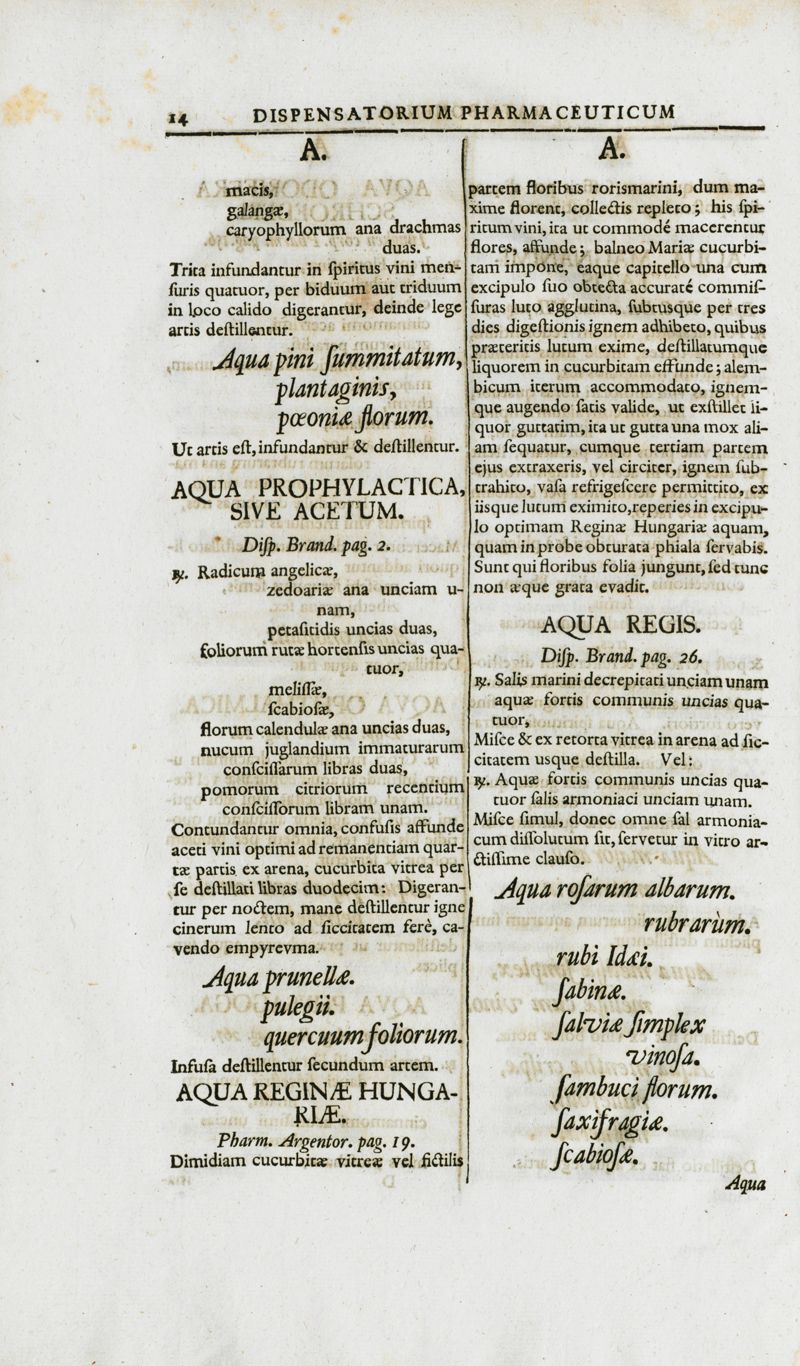 14 DISPENSATORIUM PHARMACEUTICUM
A.
macis,
galangæ,
caryophyllorum ana drachmas
duas.
Trita infundantur in ſpiritus vini men-
ſuris quatuor, per biduum aut triduum
in loco calido digerantur, deinde lege
artis deſtillentur.
Aqua pini ſummitatum,
plantaginis,
pœoniæ florum.
Ut artis eſt, infundantur & deſtillentur.
AQUA PROPHYLACTICA,
SIVE ACETUM.
Diſp. Brand. pag. 2.
℞. Radicum angelicæ,
zedoariæ ana unciam u-
nam,
petaſitidis uncias duas,
foliorum rutæ hortenſis uncias qua-
tuor,
meliſſæ,
ſcabioſæ,
florum calendulæ ana uncias duas,
nucum juglandium immaturarum
conſciſſarum libras duas,
pomorum citriorum recentium
conſciſſorum libram unam.
Contundantur omnia, confuſis affunde
aceti vini optimi ad remanentiam quar-
tæ partis ex arena, cucurbita vitrea per
ſe deſtillati libras duodecim: Digeran-
tur per noctem, mane deſtillentur igne
cinerum lento ad ſiccitatem ferè, ca-
vendo empyrevma.
Aqua prunellæ.
pulegii.
quercuum foliorum.
Infuſa deſtillentur ſecundum artem.
AQUA REGINÆ HUNGA-
RIÆ.
Pharm. Argentor. pag. 19.
Dimidiam cucurbitæ vitreæ vel fictilis
A.
partem floribus rorismarini, dum ma-
xime florent, collectis repleto; his ſpi-
ritum vini, ita ut commodé macerentur
flores, affunde; balneo Mariæ cucurbi-
tam impone, eaque capitello una cum
excipulo ſuo obtecta accuraté commiſ-
ſuras luto agglutina, ſubtusque per tres
dies digeſtionis ignem adhibeto, quibus
præteritis lutum exime, deſtillatumque
liquorem in cucurbitam effunde; alem-
bicum iterum accommodato, ignem-
que augendo ſatis valide, ut exſtillet li-
quor guttatim, ita ut gutta una mox ali-
am ſequatur, cumque tertiam partem
ejus extraxeris, vel circiter, ignem ſub-
trahito, vaſa refrigeſcere permittito, ex
iisque lutum eximito, reperies in excipu-
lo optimam Reginæ Hungariæ aquam,
quam in probe obturata phiala ſervabis.
Sunt qui floribus folia jungunt, ſed tunc
non æque grata evadit.
AQUA REGIS.
Diſp. Brand. pag. 26.
℞. Salis marini decrepitati unciam unam
aquæ fortis communis uncias qua-
tuor,
Miſce & ex retorta vitrea in arena ad ſic-
citatem usque deſtilla. Vel:
℞. Aquæ fortis communis uncias qua-
tuor ſalis armoniaci unciam unam.
Miſce ſimul, donec omne ſal armonia-
cum diſſolutum ſit, ſervetur in vitro ar-
ctiſſime clauſo.
Aqua roſarum albarum.
rubrarùm.
rubi Idæi.
ſabinæ.
ſalviæ ſimplex
vinoſa.
ſambuci florum.
ſaxifragiæ.
ſcabioſæ.
Aqua